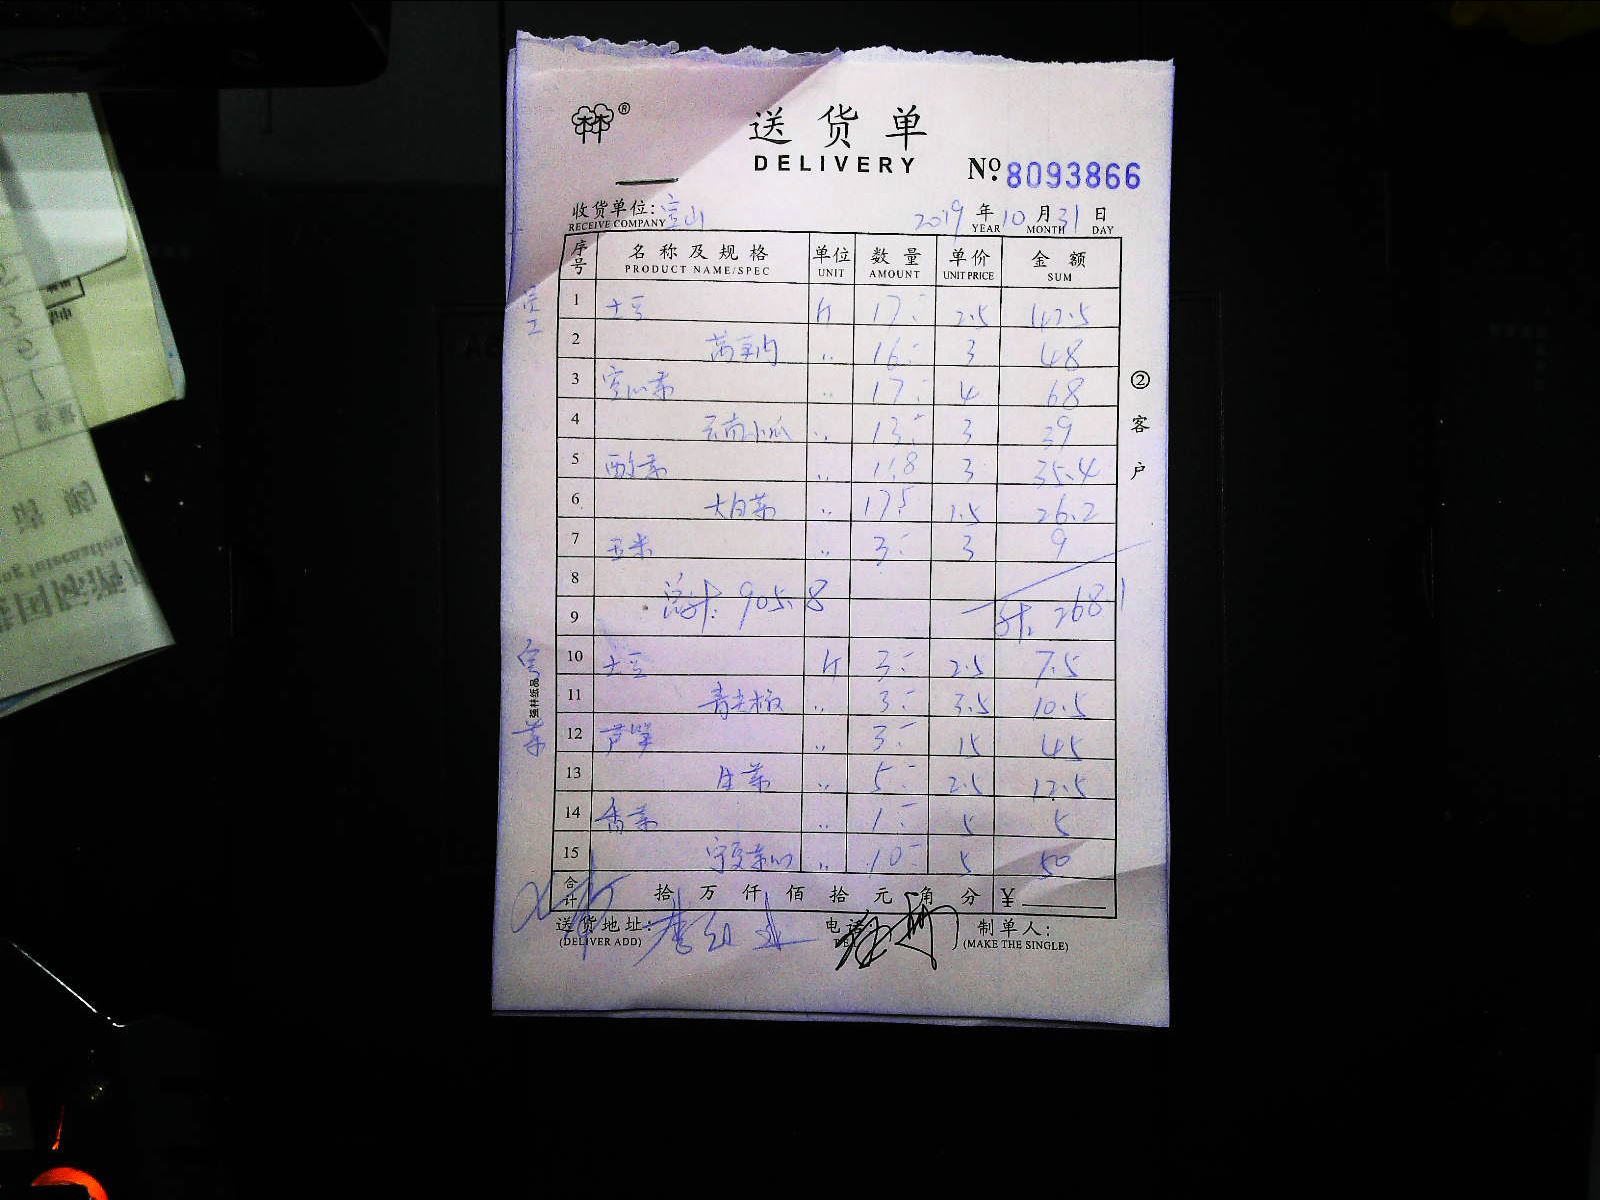 林®
送货单
DELIVERY
Nº. 8093866
收货单位: 宝山
2019 年 10 月 31 日
RECEIVE COMPANY YEAR MONTH DAY
序号 名称及规格 单位 数量 单价 金额
PRODUCT NAME/SPEC UNIT AMOUNT UNIT PRICE SUM
员工
1 土豆 斤 17.- 2.5 42.5
2 莴笋肉 〃 16.- 3 48
3 空心菜 〃 17.- 4 68
4 云南小瓜 〃 13.- 3 39
5 酸菜 〃 11.8 3 35.4
6 大白菜 〃 17.5 1.5 26.2
7 玉米 〃 3.- 3 9
8
总计: 905.8
9 计: 268.1
10 土豆 斤 3.- 2.5 7.5
11 青尖椒 〃 3.- 3.5 10.5
12 芦笋 〃 3.- 15 45
13 生菜 〃 5.- 2.5 12.5
14 香菜 〃 1.- 5 5
15 宁夏菜心 〃 10.- 5 50
合计 拾 万 仟 佰 拾 元 角 分 ¥
送货地址: 电话: 制单人:
(DELIVER ADD) (MAKE THE SINGLE)
②客户
强林纸品